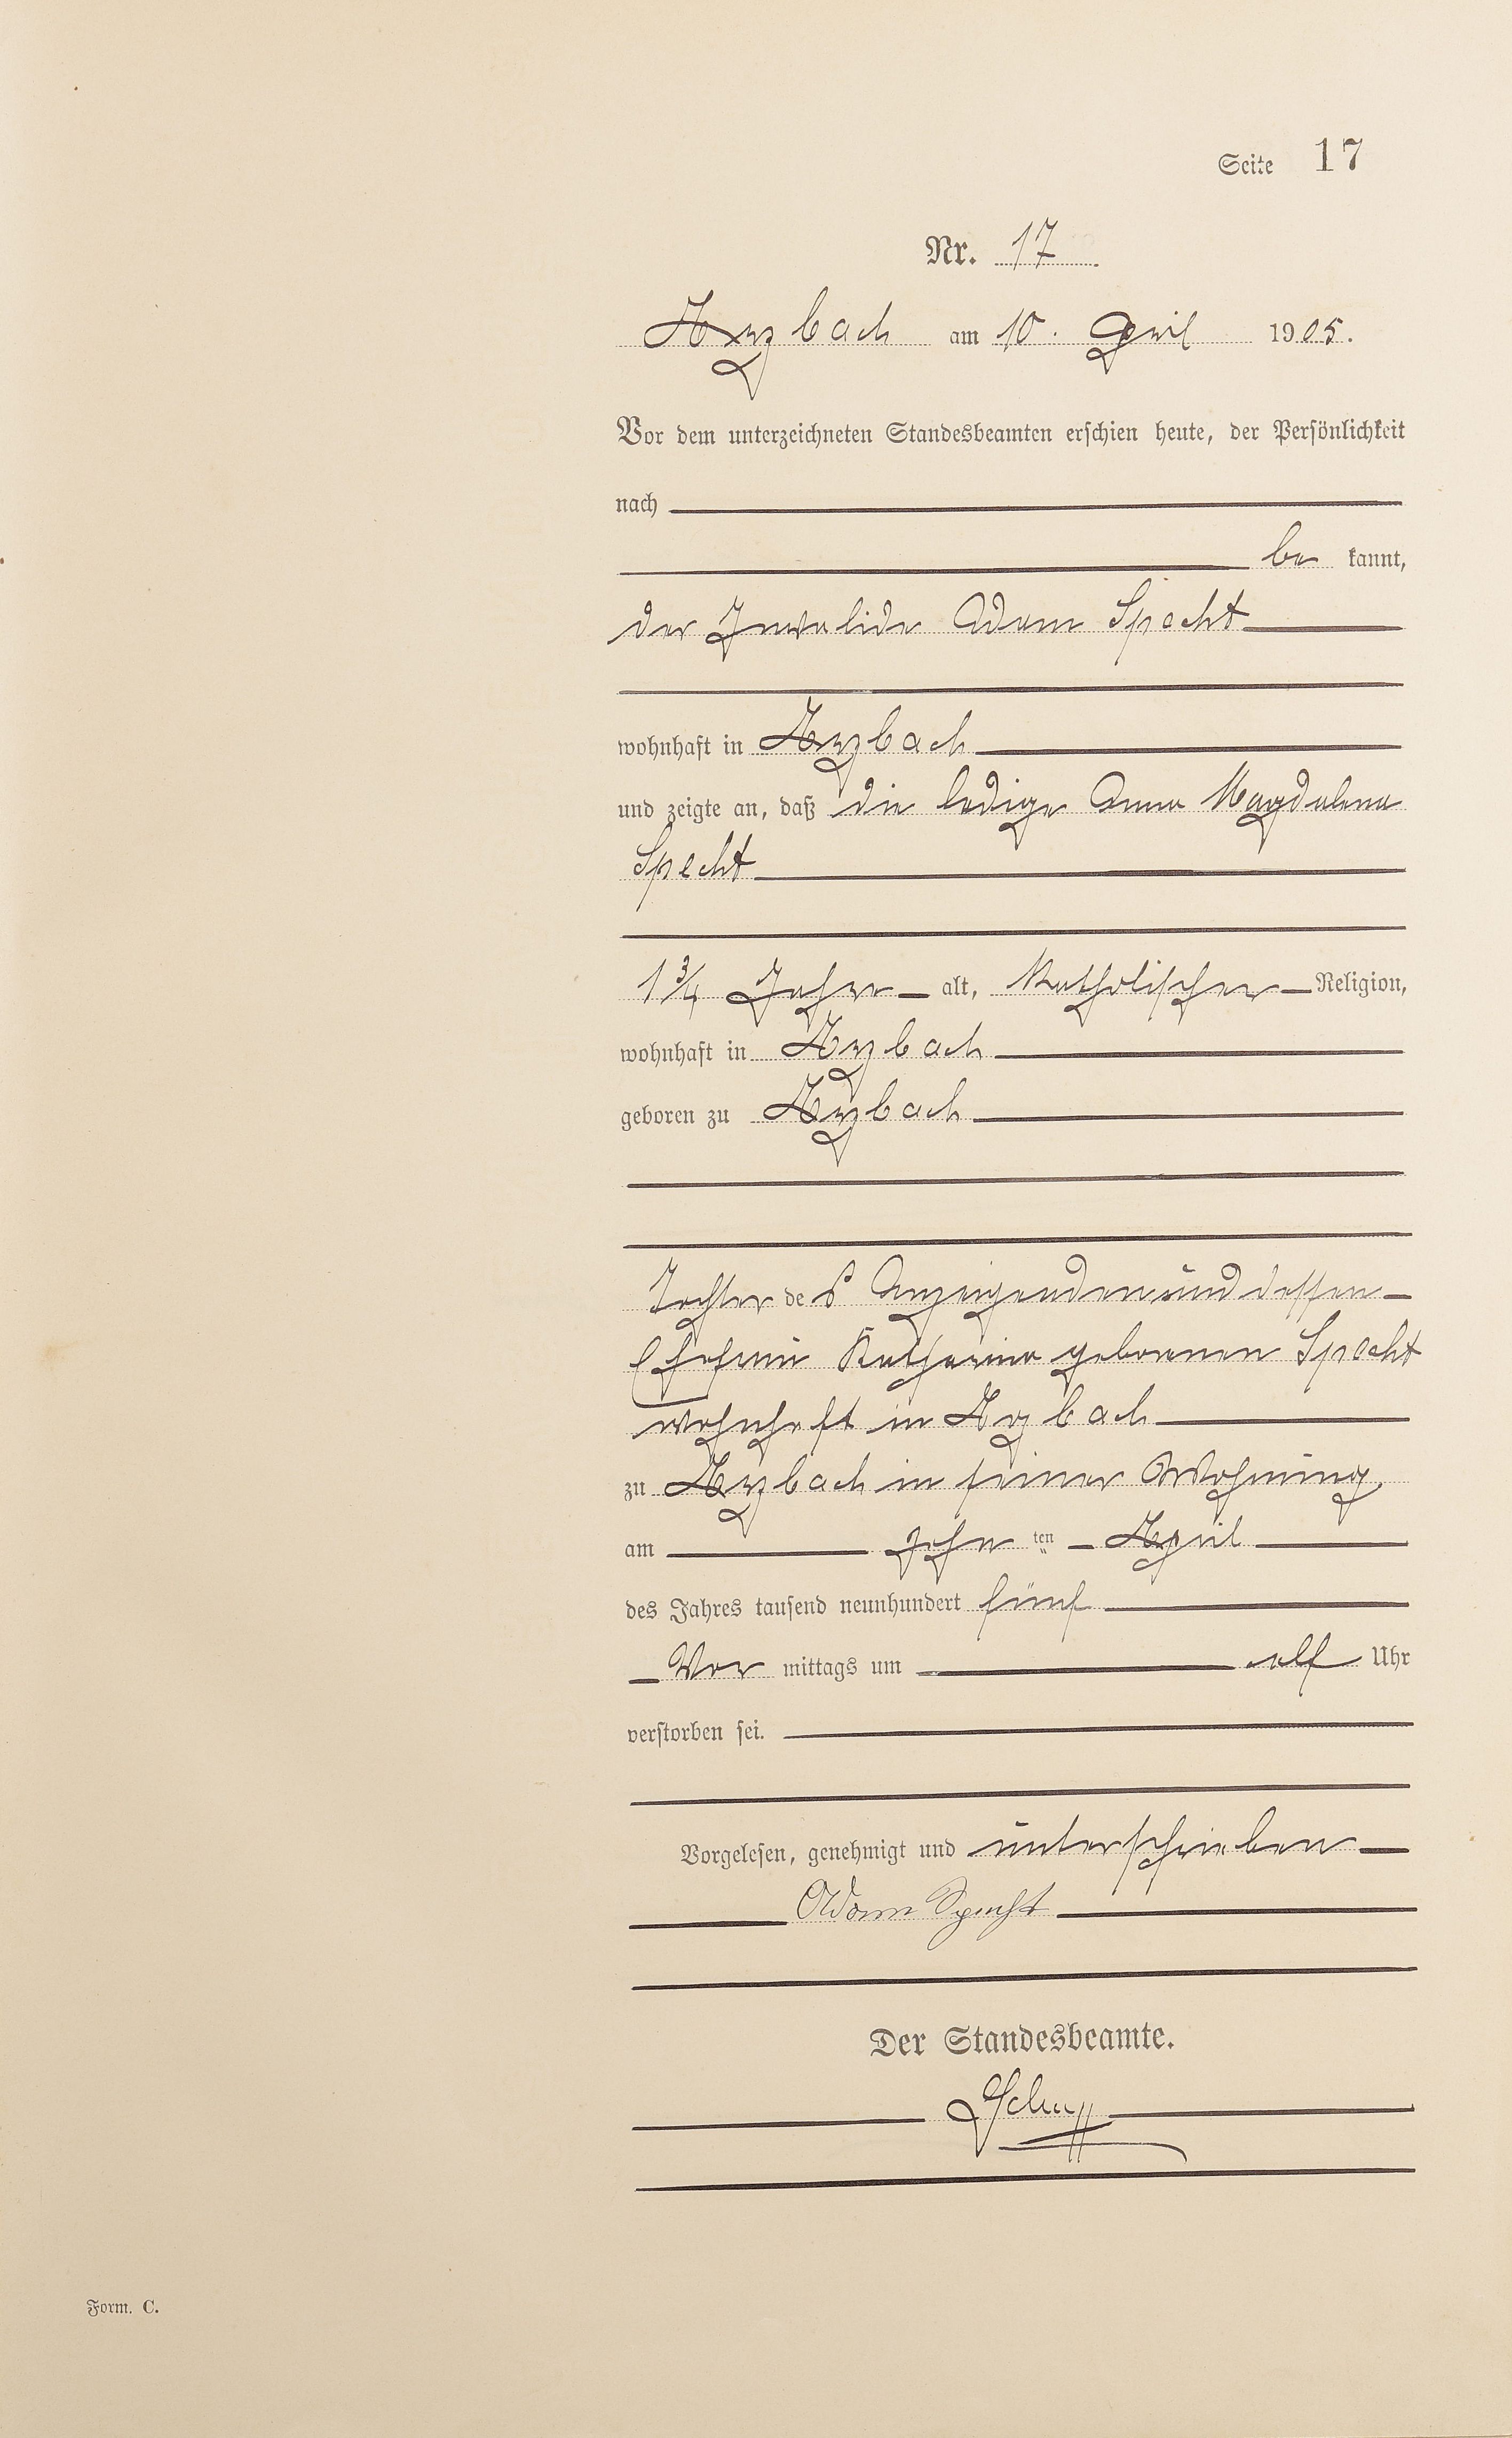 Seite 17
Nr. 17
Arzbach am 10. April 1905.
Vor dem unterzeichneten Standesbeamten erschien heute, der Persönlichkeit
nach
be kannt,
der Invalide Adam Specht
wohnhaft in Arzbach
und zeigte an, daß die ledige Anna Magdalena
Specht
1 3/4 Jahre alt, Katholischer Religion,
wohnhaft in Arzbach
geboren zu Arzbach
Tochter des Anzeigenden und dessen
Ehefrau Katharina geborenen Specht
wohnhaft in Arzbach
zu Arzbach in seiner Wohnung
am zehn ten April
des Jahres tausend neunhundert fünf
Vor mittags um elf Uhr
verstorben sei.
Vorgelesen, genehmigt und unterschrieben
Adam Specht
Der Standesbeamte.
Form. C.